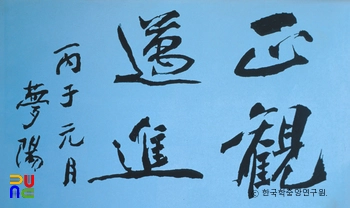 正観
邁進
丙子元月
夢陽
© 한국학중앙연구원.